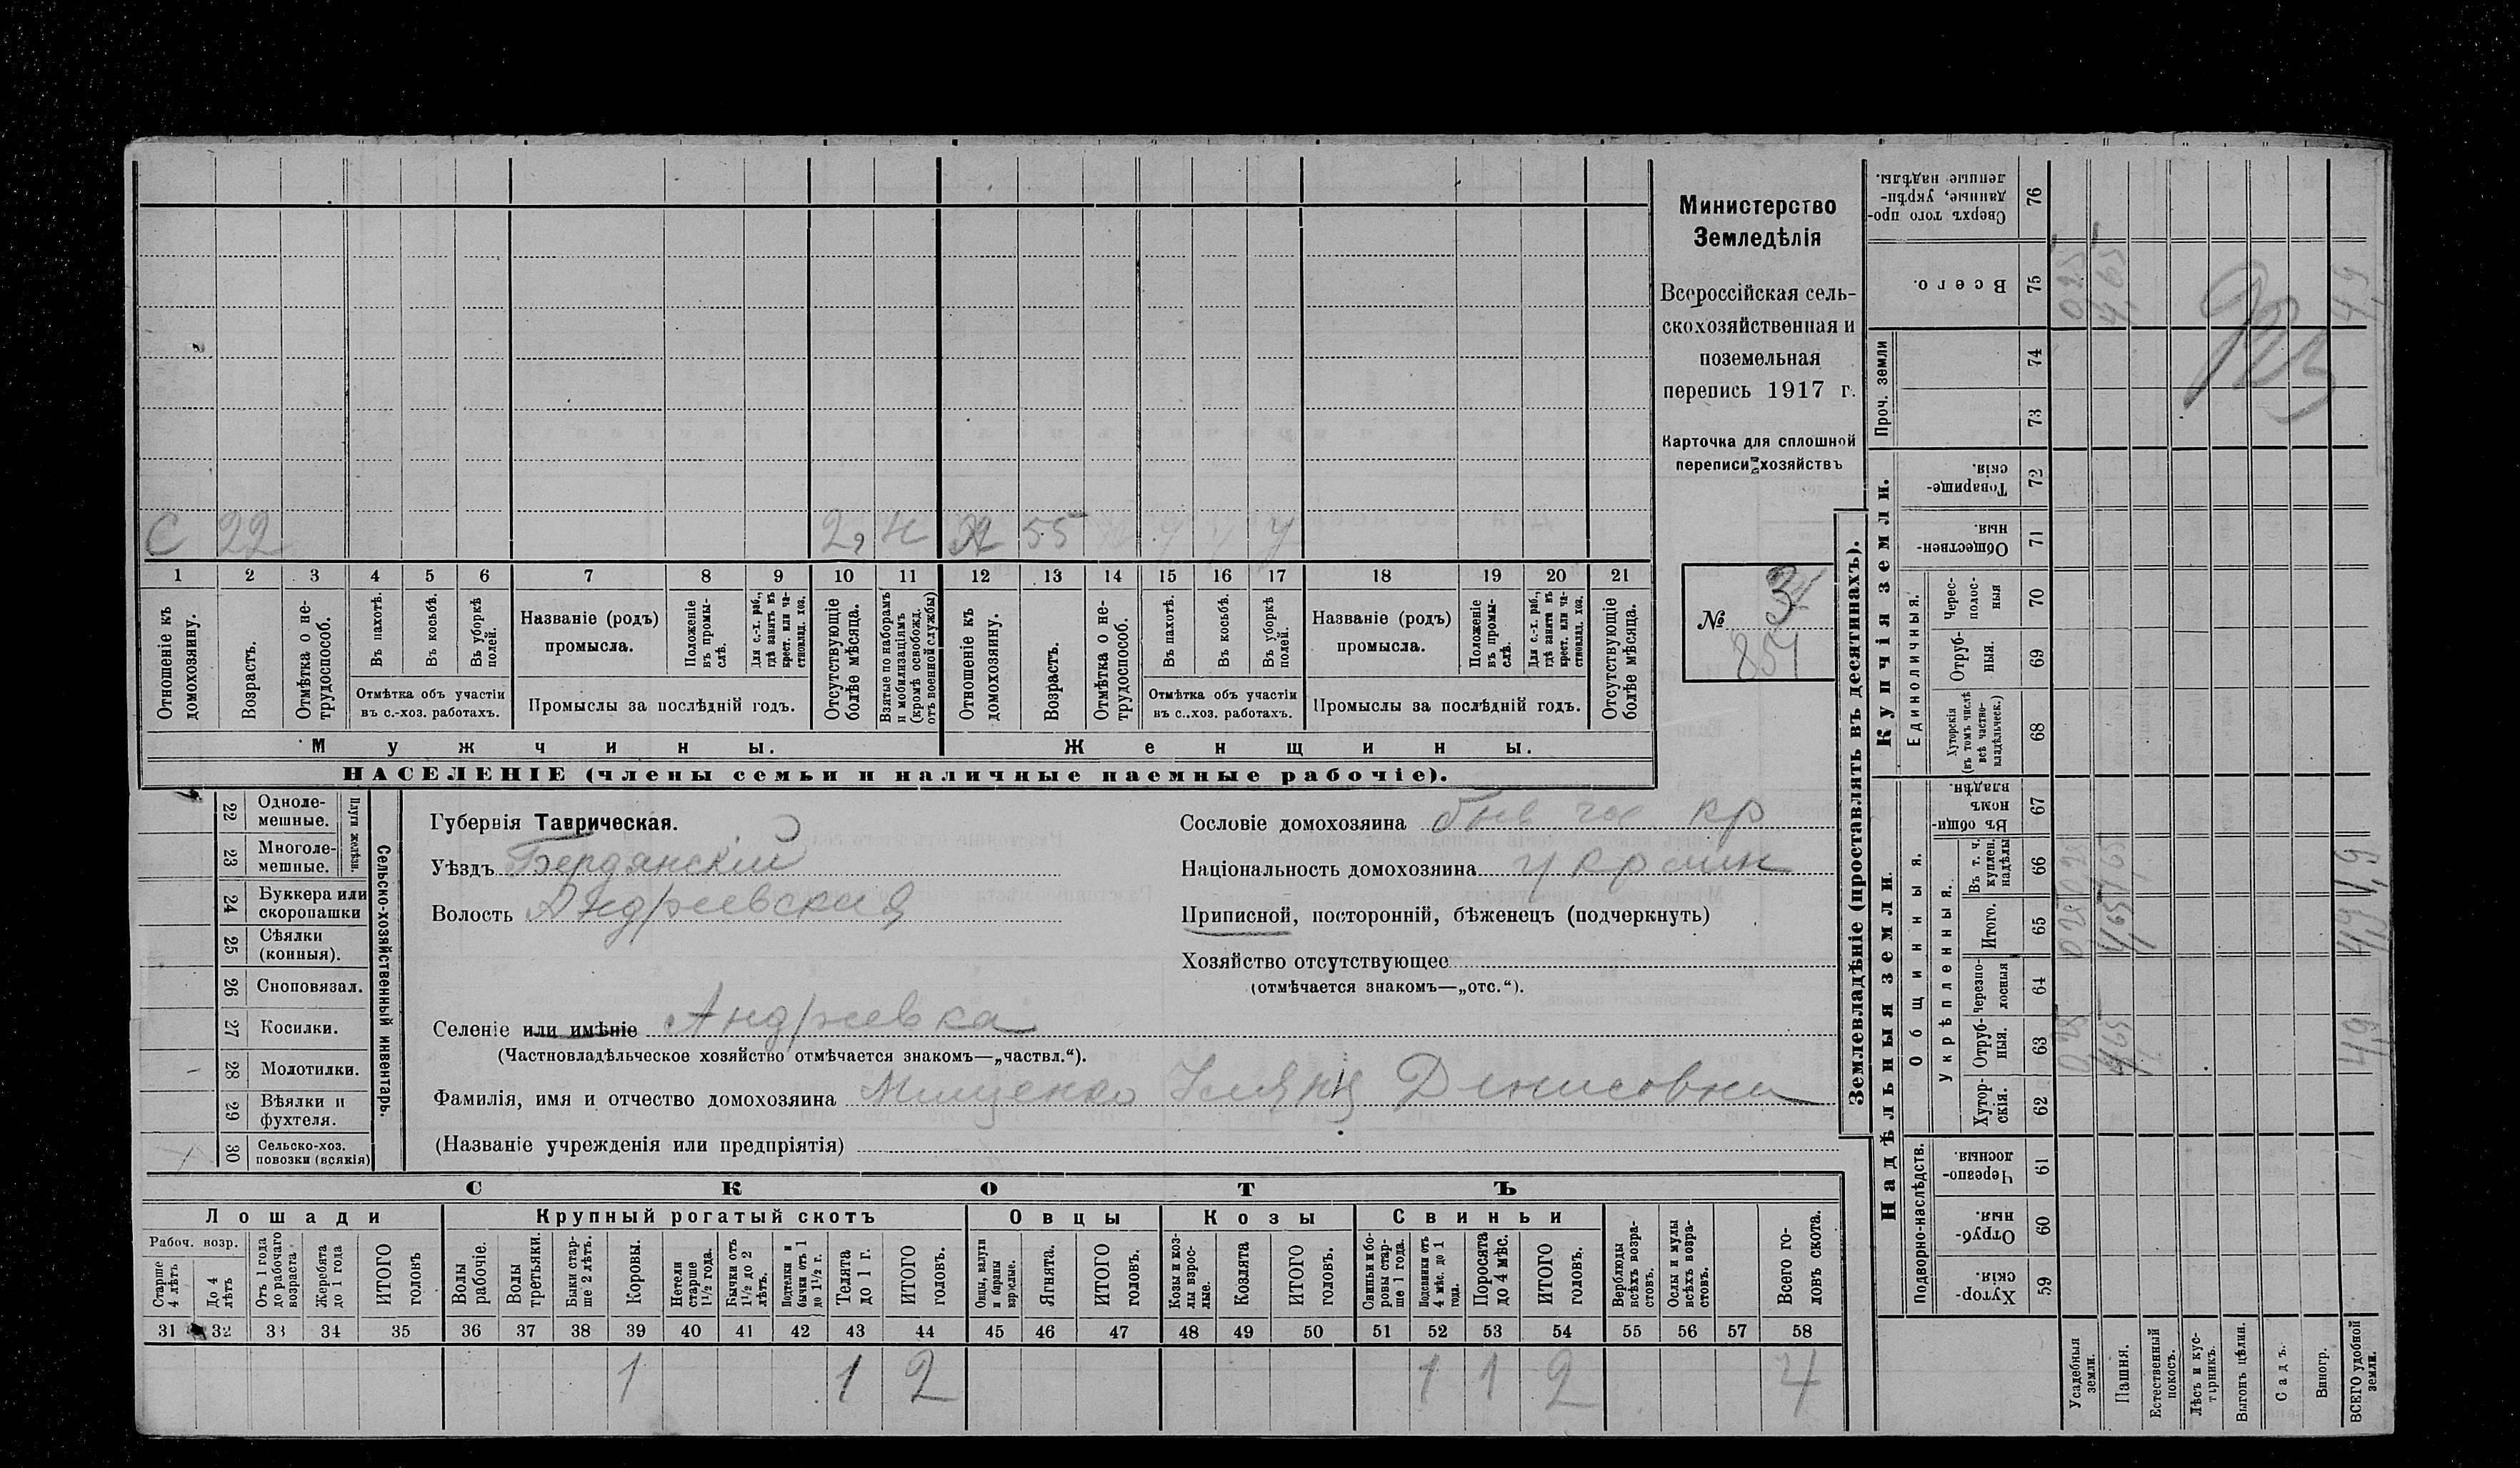 С 22 2, Н Х 55 У
1 2 3 4 5 6 7 8 9 10 11 12 13 14 15 16 17 18 19 20 21
Отношеніе къ домохозяину.
Возрастъ.
Отмѣтка о нетрудоспособ.
Въ пахотѣ.
Въ косьбѣ.
Въ уборкѣ полей.
Отмѣтка объ участіи
въ с.-хоз. работахъ.
Названіе (родъ)
промысла.
Положеніе въ промыслѣ.
Для с.-х. раб., гдѣ занятъ въ крест. или частновлад. хоз.
Промыслы за послѣдній годъ.
Отсутствующіе болѣе мѣсяца.
Взятые по наборамъ и мобилизаціямъ (кромѣ освобожд. отъ военной службы)
Отношеніе къ домохозяину.
Возрастъ.
Отмѣтка о нетрудоспособ.
Въ пахотѣ.
Въ косьбѣ.
Въ уборкѣ полей.
Отмѣтка объ участіи
въ с.-хоз. работахъ.
Названіе (родъ)
промысла.
Положеніе въ промыслѣ.
Для с.-х. раб., гдѣ занята въ крест. или частновлад. хоз.
Промыслы за послѣдній годъ.
Отсутствующіе болѣе мѣсяца.
Мужчины. Женщины.
НАСЕЛЕНІЕ (члены семьи и наличные наемные рабочіе).
Министерство
Земледѣлія
Всероссійская сель-
скохозяйственная и
поземельная
перепись 1917 г.
Карточка для сплошной
переписи хозяйствъ
№
851
Сельско-хозяйственный инвентарь.
Плуги желѣзн.
22 Одноле-
мешные.
23 Многоле-
мешные.
24 Буккера или
скоропашки
25 Сѣялки
(конныя).
26 Сноповязал.
27 Косилки.
28 Молотилки.
29 Вѣялки и
фухтеля.
30 Сельско-хоз.
повозки (всякія)
Губернія Таврическая.
Уѣздъ Бердянскій
Волость Андреевская
Сословіе домохозяина быв. гос. кр
Національность домохозяина украин
Приписной, посторонній, бѣженецъ (подчеркнуть)
Хозяйство отсутствующее
(отмѣчается знакомъ—„отс.“).
Селеніе или имѣніе Андреевка
(Частновладѣльческое хозяйство отмѣчается знакомъ—„частвл.“).
Фамилія, имя и отчество домохозяина Мищенко Денисовны
(Названіе учрежденія или предпріятія)
СКОТЪ
Лошади Крупный рогатый скотъ Овцы Козы Свиньи
Рабоч. возр.
Старше 4 лѣтъ
До 4 лѣтъ
Отъ 1 года до рабочаго возраста
Жеребята до 1 года
ИТОГО головъ
Волы рабочіе.
Волы третьяки.
Быки старше 2 лѣтъ.
Коровы.
Нетели старше 1½ года.
Бычки отъ 1½ до 2 лѣтъ.
Подтелки и бычки отъ 1 до 1½ г.
Телята до 1 г.
ИТОГО головъ.
Овцы, валухи и бараны взрослые.
Ягнята.
ИТОГО головъ.
Козы и козлы взрослые.
Козлята
ИТОГО головъ.
Свиньи и боровы старше 1 года.
Подсвинки отъ 4 мѣс. до 1 года.
Поросята до 4 мѣс.
ИТОГО головъ.
Верблюды всѣхъ возрастовъ.
Ослы и мулы всѣхъ возрастовъ.
Всего головъ скота.
31 32 33 34 35 36 37 38 39 40 41 42 43 44 45 46 47 48 49 50 51 52 53 54 55 56 57 58
1 1 2 1 1 2 4
Землевладѣніе (проставлять въ десятинахъ).
Купчія земли.
Надѣльныя земли.
Сверхъ того проданные, укрѣпленные надѣлы. 76
Всего. 75
Проч. земли
74
73
Товарищескія. 72
Общественныя. 71
Единоличныя.
Череcполосныя 70
Отрубныя. 69
Хуторскія (въ томъ числѣ всѣ частновладѣльческ.) 68
Общинныя.
Въ общинномъ владѣн. 67
Укрѣпленныя.
Въ т. ч. куплен. надѣлы 66
Итого. 65
черезполосныя 64
Отрубныя. 63
Хуторскія. 62
Подворно-наслѣдств.
Черезполосныя. 61
Отрубныя. 60
Хуторскія. 59
Усадебныя земли.
Пашня.
Естественный покосъ.
Лѣсъ и кустарникъ.
Выгонъ цѣлин.
Садъ.
Виногр.
ВСЕГО удобной земли.